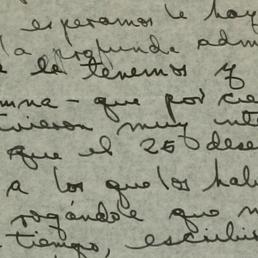 esperamos le hay
la profunda adm
e le tenemos y
mna - que por cie
vieron muy int
que el 25 dese
a los que los hab
rogándole que m
tiempo, escribir